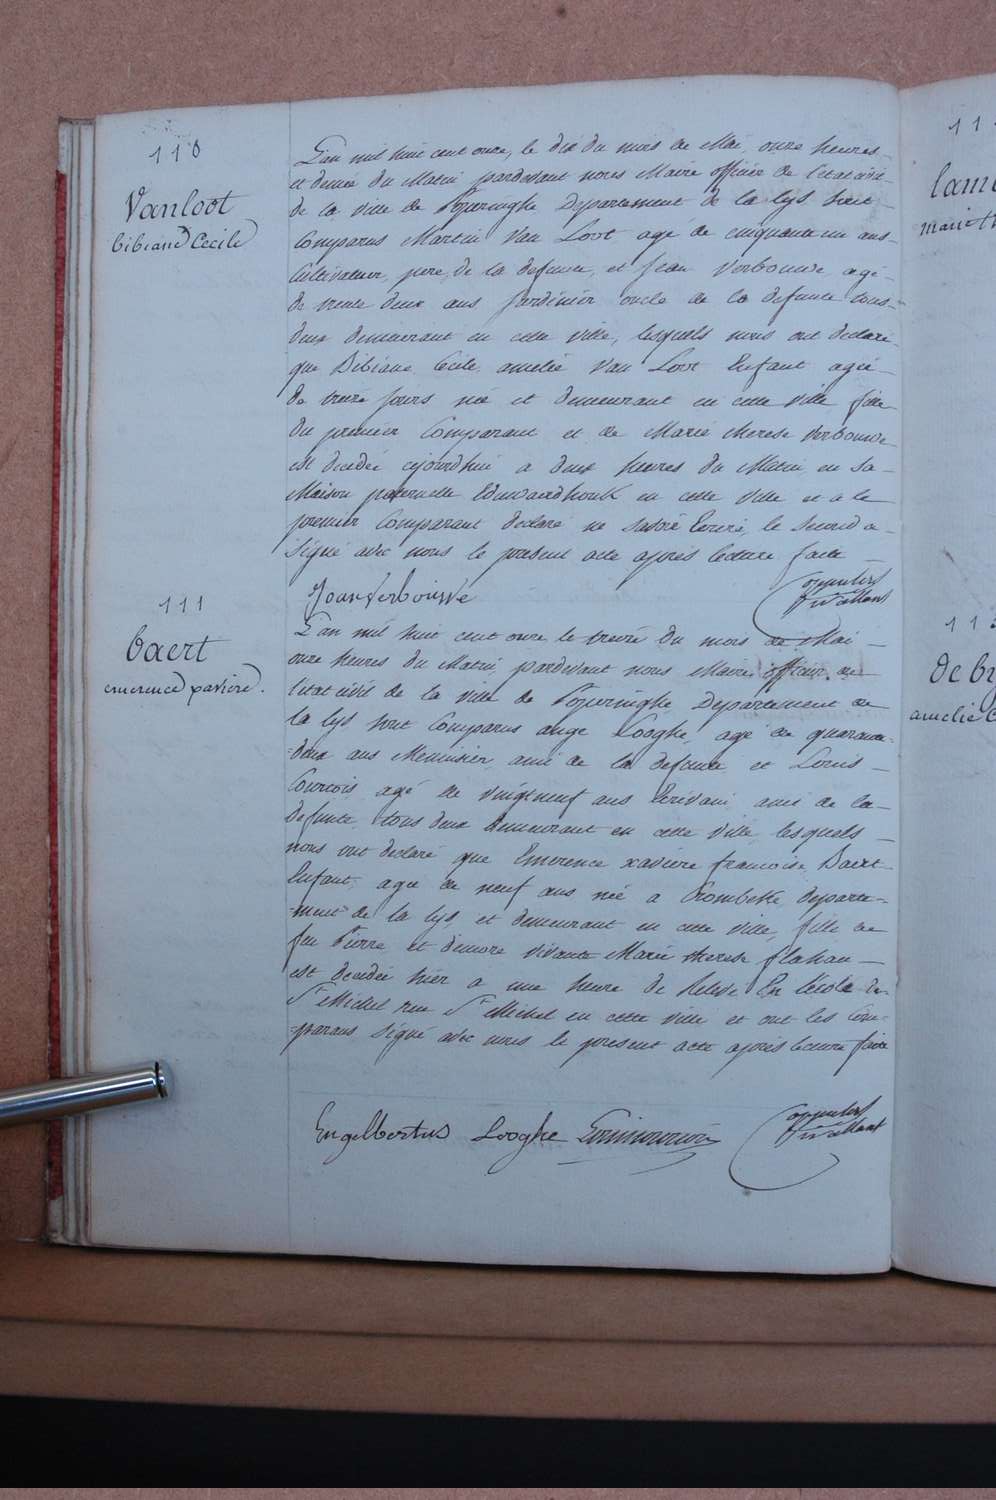 110
Vanloot
bibiane Cecile
L'an mil huit cent onze, le dix du mois de Mai, onze heures
et demie du Matin pardevant nous Maire officier de l'etat civil
de la ville de Poperinghe Departement de la lys sont
Comparus Martin Van Loot agé de cinquante un ans
Cultivateur, pere de la defunte, et Jean Verbouwe agé
de trente deux ans Jardinier oncle de la defunte tous
deux demeurant en cette ville, lesquels nous ont declaré
que Bibiane Cecile amelie Van Loot Enfant agée
de treize Jours née et demeurant en cette ville fille
du premier Comparant et de Marie therese Verbouwe
est decedée cejourdhui a deux heures du Matin en sa
Maison paternelle Eduwaerdhoek en cette ville et a le
premier Comparant declaré ne savoir Ecrire, le second a
signé avec nous le present acte après lecture faite
Joan Verbouwe
111
baert
emerence xaviere.
L'an mil huit cent onze le treize du mois de Mai
onze heures du Matin, pardevant nous Maire officier de
l'etat civil de la ville de Poperinghe Departement de
la lys sont Comparus ange Looghe, agé de quarante
=deux ans Menuisier, ami de la defunte et Louis
Courtois agé de vingtneuf ans Ecrivain ami de la
defunte, tous deux demeurant en cette ville, lesquels
nous ont declaré que Emerence xaviere francoise Baert
Enfant, agée de neuf ans née a Crombeke departe=
=ment de la lys, et demeurant en cette ville, fille de
feu Pierre et d'encore vivante Marie therese flahau
est decedée hier a une heure de Relevé En l'école de
St Michel rue St Michel en cette ville et ont les Com=
=parans signé avec nous le present acte après lecture faite
Engelbertus Looghe
11
lam
marie t
11
de br
amelie c